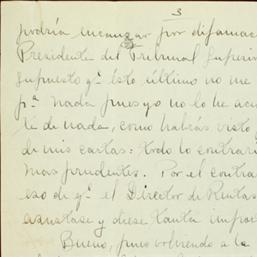 3
podría incuagar por difamac
Presidente del Tribunal Superio
supuesto qº esto último no me
pª nada pues yo no lo he acu
lé de nada, como habrás visto
de mis cartas: todo lo contrari
mas prudentes. Por el contra
eso de qº el Director de Rentas
asustase y diese tanta impor
Bueno, pues volviendo a la